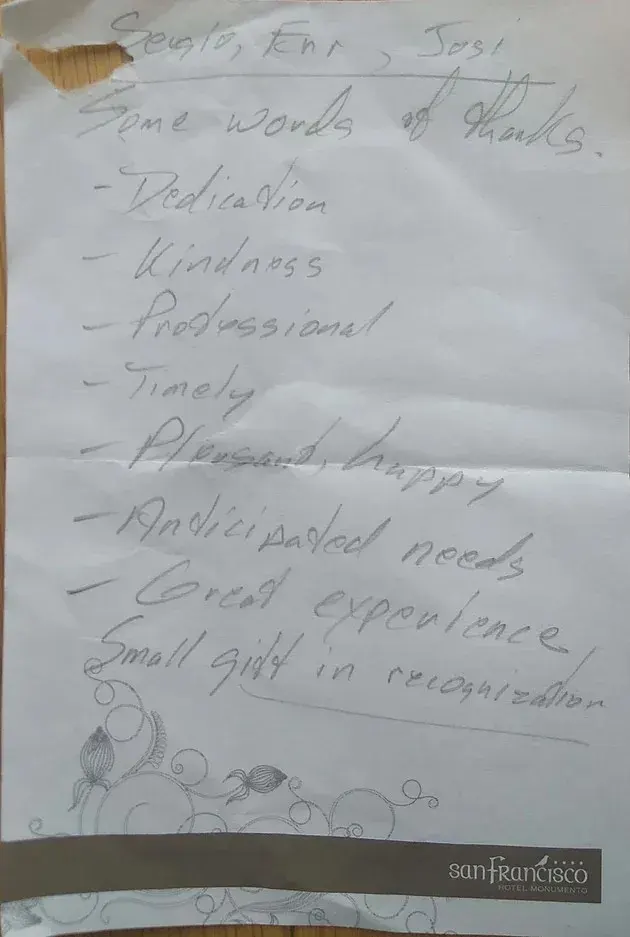 Sergio, Enr , Josi
Some words of thanks.
- Dedication
- Kindness
- Professional
- Timely
- Pleasant, happy
- Anticipated needs
- Great experience
Small gift in recognization
sanFrancisco
HOTEL MONUMENTO